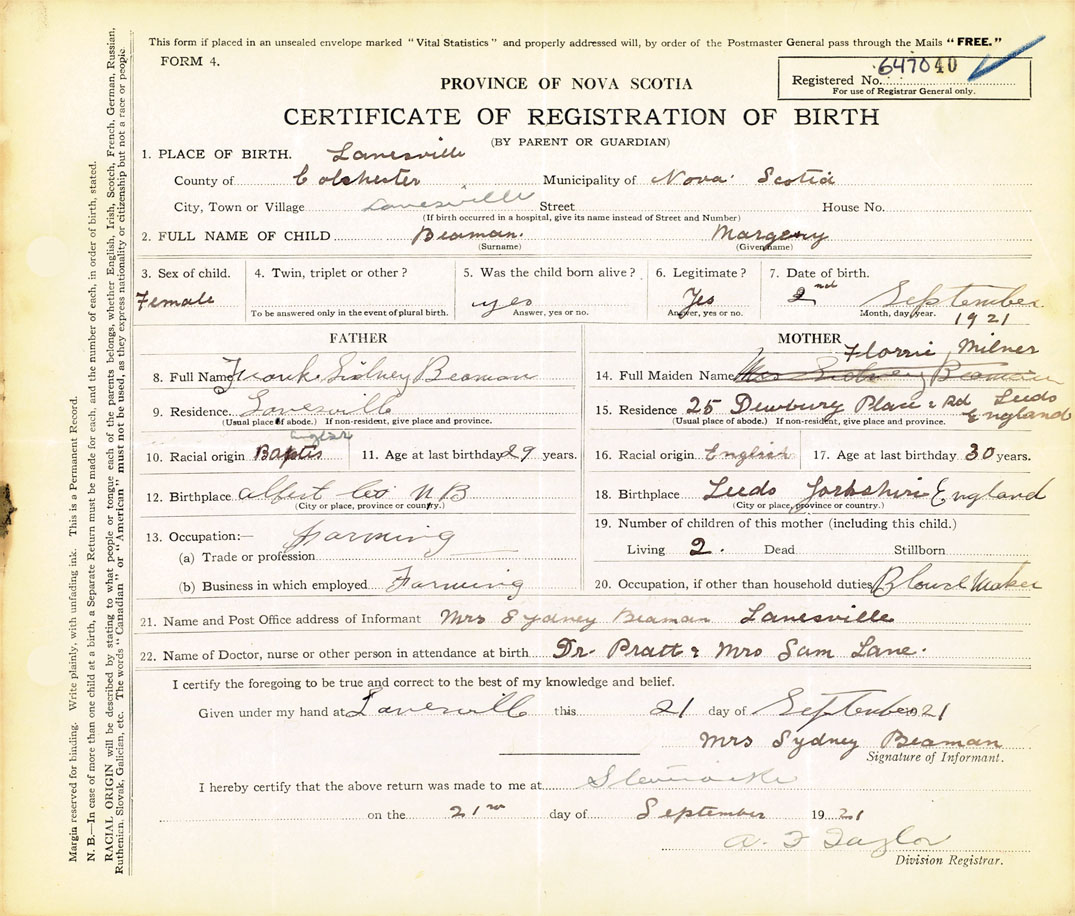 This form if placed in an unsealed envelope marked "Vital Statistics" and properly addressed will, by order of the Postmaster General pass through the Mails "FREE."
FORM 4.
Registered No. 647040
For use of Registrar General only.
PROVINCE OF NOVA SCOTIA
CERTIFICATE OF REGISTRATION OF BIRTH
(BY PARENT OR GUARDIAN)
1. PLACE OF BIRTH. Lanesville
County of Colchester Municipality of Nova Scotia
City, Town or Village Lanesville Street House No.
(If birth occurred in a hospital, give its name instead of Street and Number)
2. FULL NAME OF CHILD Beaman. Margery
(Surname) (Given name)
3. Sex of child. 4. Twin, triplet or other? 5. Was the child born alive? 6. Legitimate? 7. Date of birth.
Female yes Yes 2nd September
To be answered only in the event of plural birth. Answer, yes or no. Answer, yes or no. Month, day, year. 1921
FATHER
8. Full Name Frank Sidney Beaman
9. Residence Lanesville
(Usual place of abode.) If non-resident, give place and province.
10. Racial origin Baptis 11. Age at last birthday 29 years.
12. Birthplace Albert Co N B
(City or place, province or country.)
13. Occupation:— Farming
(a) Trade or profession
(b) Business in which employed Farming
MOTHER
Florrie Milner
14. Full Maiden Name Mrs Sidney Beaman
15. Residence 25 Dewbury Place Rd Leeds England
(Usual place of abode.) If non-resident, give place and province.
16. Racial origin English 17. Age at last birthday 30 years.
18. Birthplace Leeds Yorkshire England
(City or place, province or country.)
19. Number of children of this mother (including this child.)
Living 2. Dead Stillborn
20. Occupation, if other than household duties Blouse Maker
21. Name and Post Office address of Informant Mrs Sydney Beaman Lanesville
22. Name of Doctor, nurse or other person in attendance at birth Dr. Pratt & Mrs Sam Lane.
I certify the foregoing to be true and correct to the best of my knowledge and belief.
Given under my hand at Lanesville this 21 day of September 21
Mrs Sydney Beaman
Signature of Informant.
I hereby certify that the above return was made to me at Stewiacke
on the 21st day of September 1921
A. F Taylor
Division Registrar.
Margin reserved for binding. Write plainly, with unfading ink. This is a Permanent Record.
N. B.—In case of more than one child at a birth, a Separate Return must be made for each, and the number of each, in order of birth, stated.
RACIAL ORIGIN will be described by stating to what people or tongue each of the parents belongs, whether English, Irish, Scotch, French, German, Russian,
Ruthenian, Slovak, Galician, etc. The words "Canadian" or "American" must not be used, as they express nationality or citizenship but not a race or people.